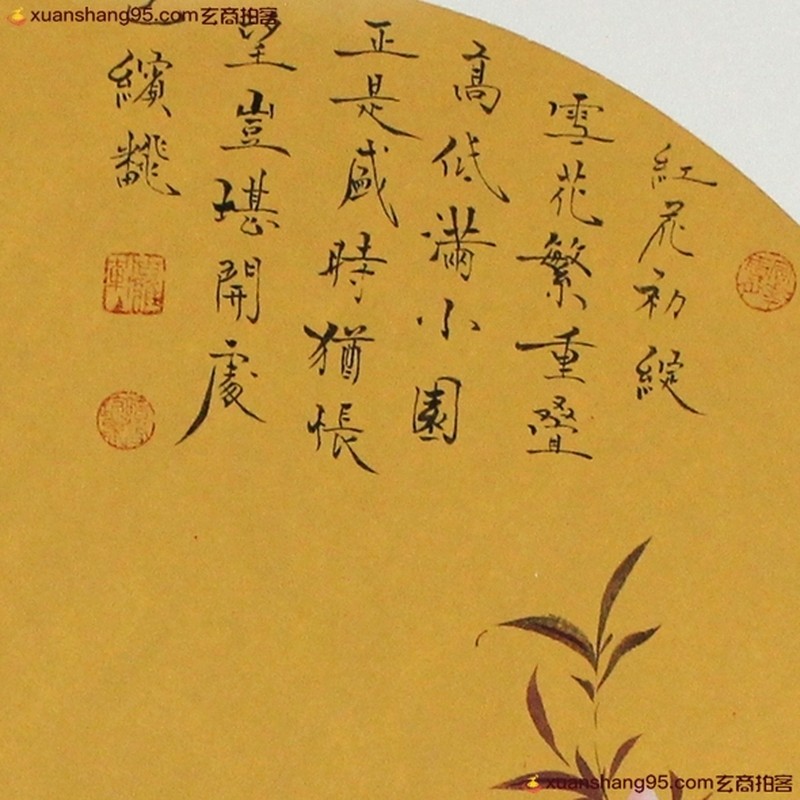 xuanshang95.com玄商拍客
紅花初綻
雪花繁重叠
高低滿小園
正是盛時猶悵
望豈堪開處
繽飜
xuanshang95.com玄商拍客